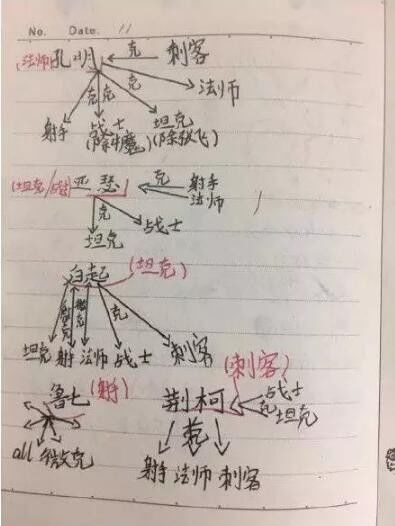 No. Date. 11
(法师)孔明 克 刺客
克 克 法师
射手 战士 坦克
(除牛魔) (除张飞)
(坦克/战士)亚瑟 克 射手
法师
克
坦克 战士
白起 (坦克)
克
坦克 射 法师 战士 刺客
鲁七 (射手) 荆柯 (刺客)
战士
克 坦克
all 微克 克
射手 法师 刺客